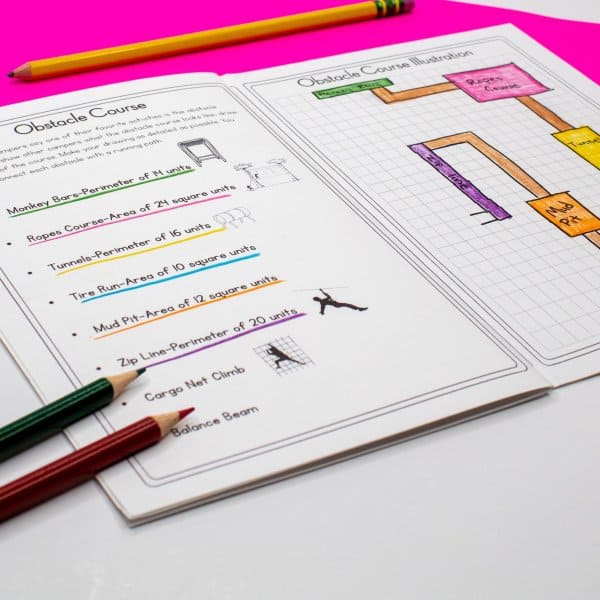 Obstacle Course
ampers say one of their favorite activities is the obstacle
show other campers what the obstacle course looks like, draw
of the course. Make your drawing as detailed as possible. You
nnect each obstacle with a running path.
Monkey Bars-Perimeter of 14 units
• Ropes Course-Area of 24 square units
• Tunnels-Perimeter of 16 units
• Tire Run-Area of 10 square units
• Mud Pit-Area of 12 square units
• Zip Line-Perimeter of 20 units
• Cargo Net Climb
Balance Beam
Obstacle Course Illustration
Monkey Bars
Ropes
Course
Tunnel
Zip line
Mud
Pit